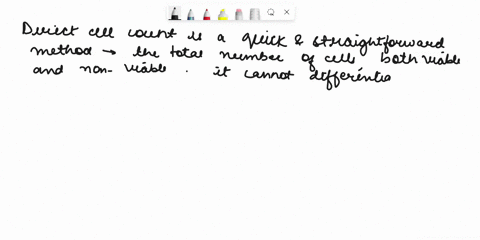 Direct cell count is a quick & straightforward
method → the total number of cells both viable
and non-viable. it cannot differentia